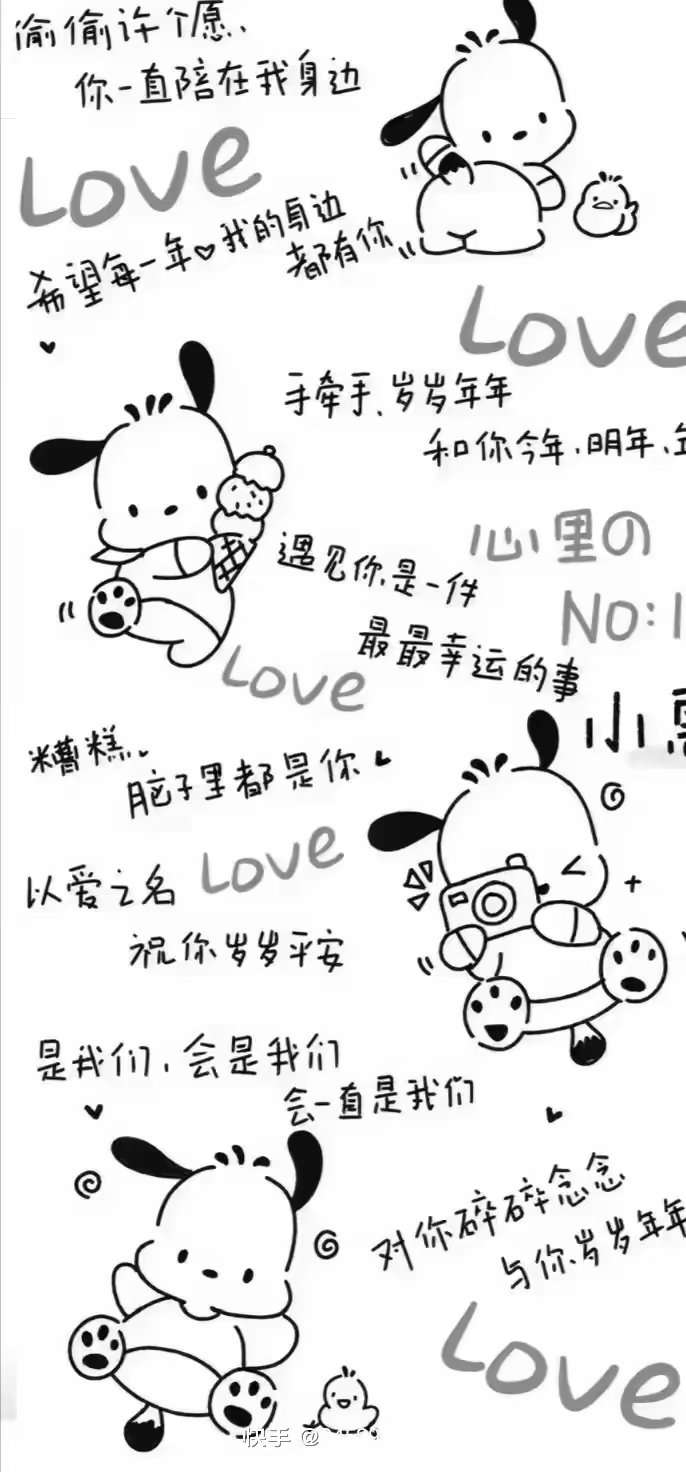 偷偷许个愿、
你一直陪在我身边
Love
希望每一年♡我的身边
都有你
Love
手牵手、岁岁年年
和你今年、明年、
心里の
NO:1
遇见你是一件
最最幸运的事
Love
小
糟糕、
脑子里都是你
Love
以爱之名
祝你岁岁平安
是我们、会是我们
会一直是我们
对你碎碎念念
与你岁岁年年
Love
快手 @